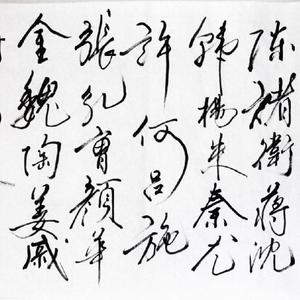 陳褚衛蔣沈
韓楊朱秦尤
許何呂施
張孔曹顏華
金魏陶姜戚